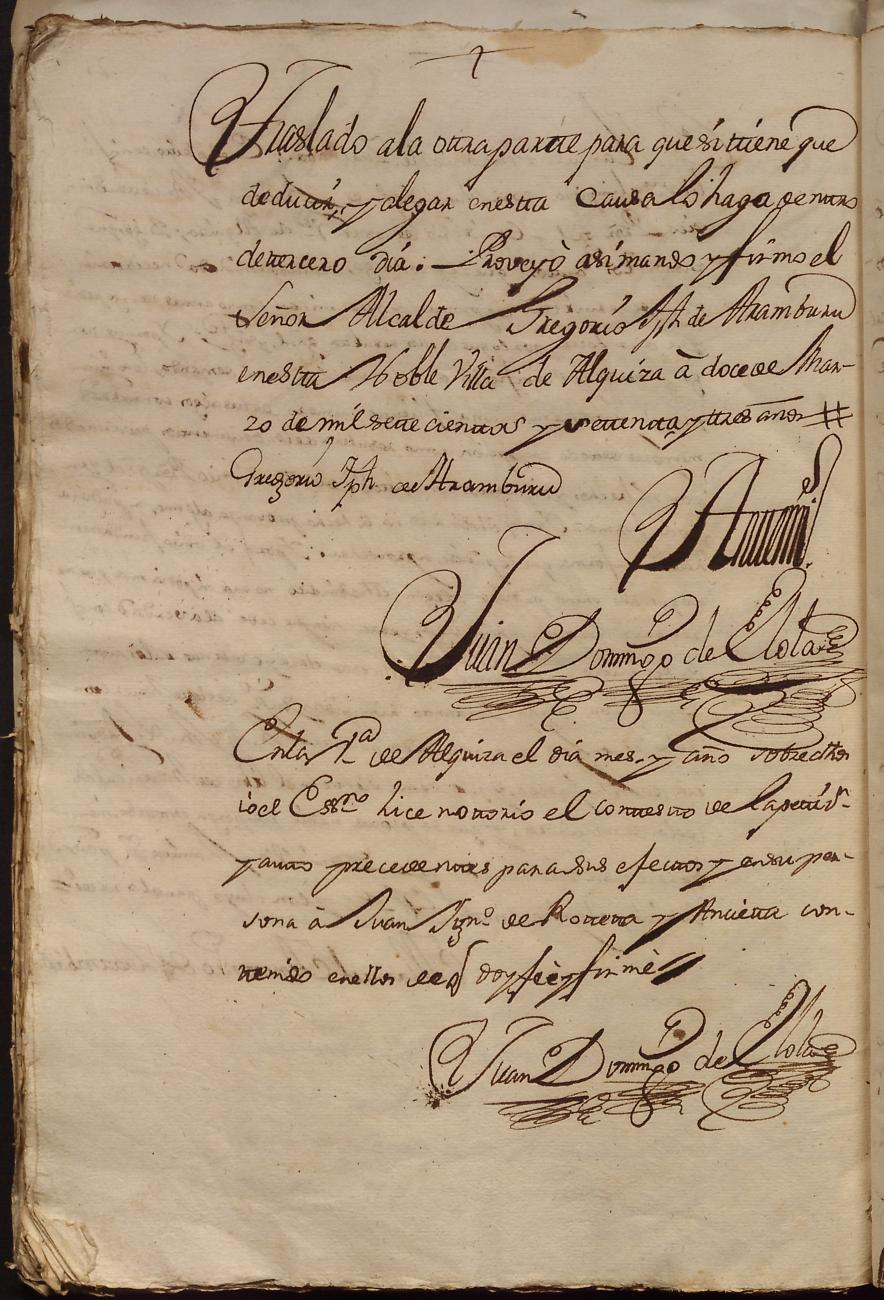 †
Traslado ala otra partte para que si ttiene que
deducir, y alegar enestta Causa lo haga dentro
detercero dia. Proveyò asi mandò y firmo el
Señor Alcalde Gregorio Jph de Aramburu
enestta Noble Villa de Alquiza à doce de Mar-
zo de mil sette cienttos y settenta y ttres años
Gregorio Jph de Aramburu
Antemi
Juan Domingo de Elola
Enla Va de Alquiza el dia mes, y año sobredho
io el Essno hice nottorio el conttestto de la pettizn
y autto precedenttes para sus efecttos y en su per-
sona à Juan Ygno de Rotteta y Ancietta con-
tenido enellos de q doy fè y firmè
Juan Domingo de Elola